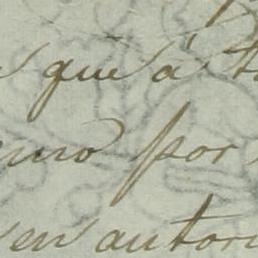 que á
por
en autori